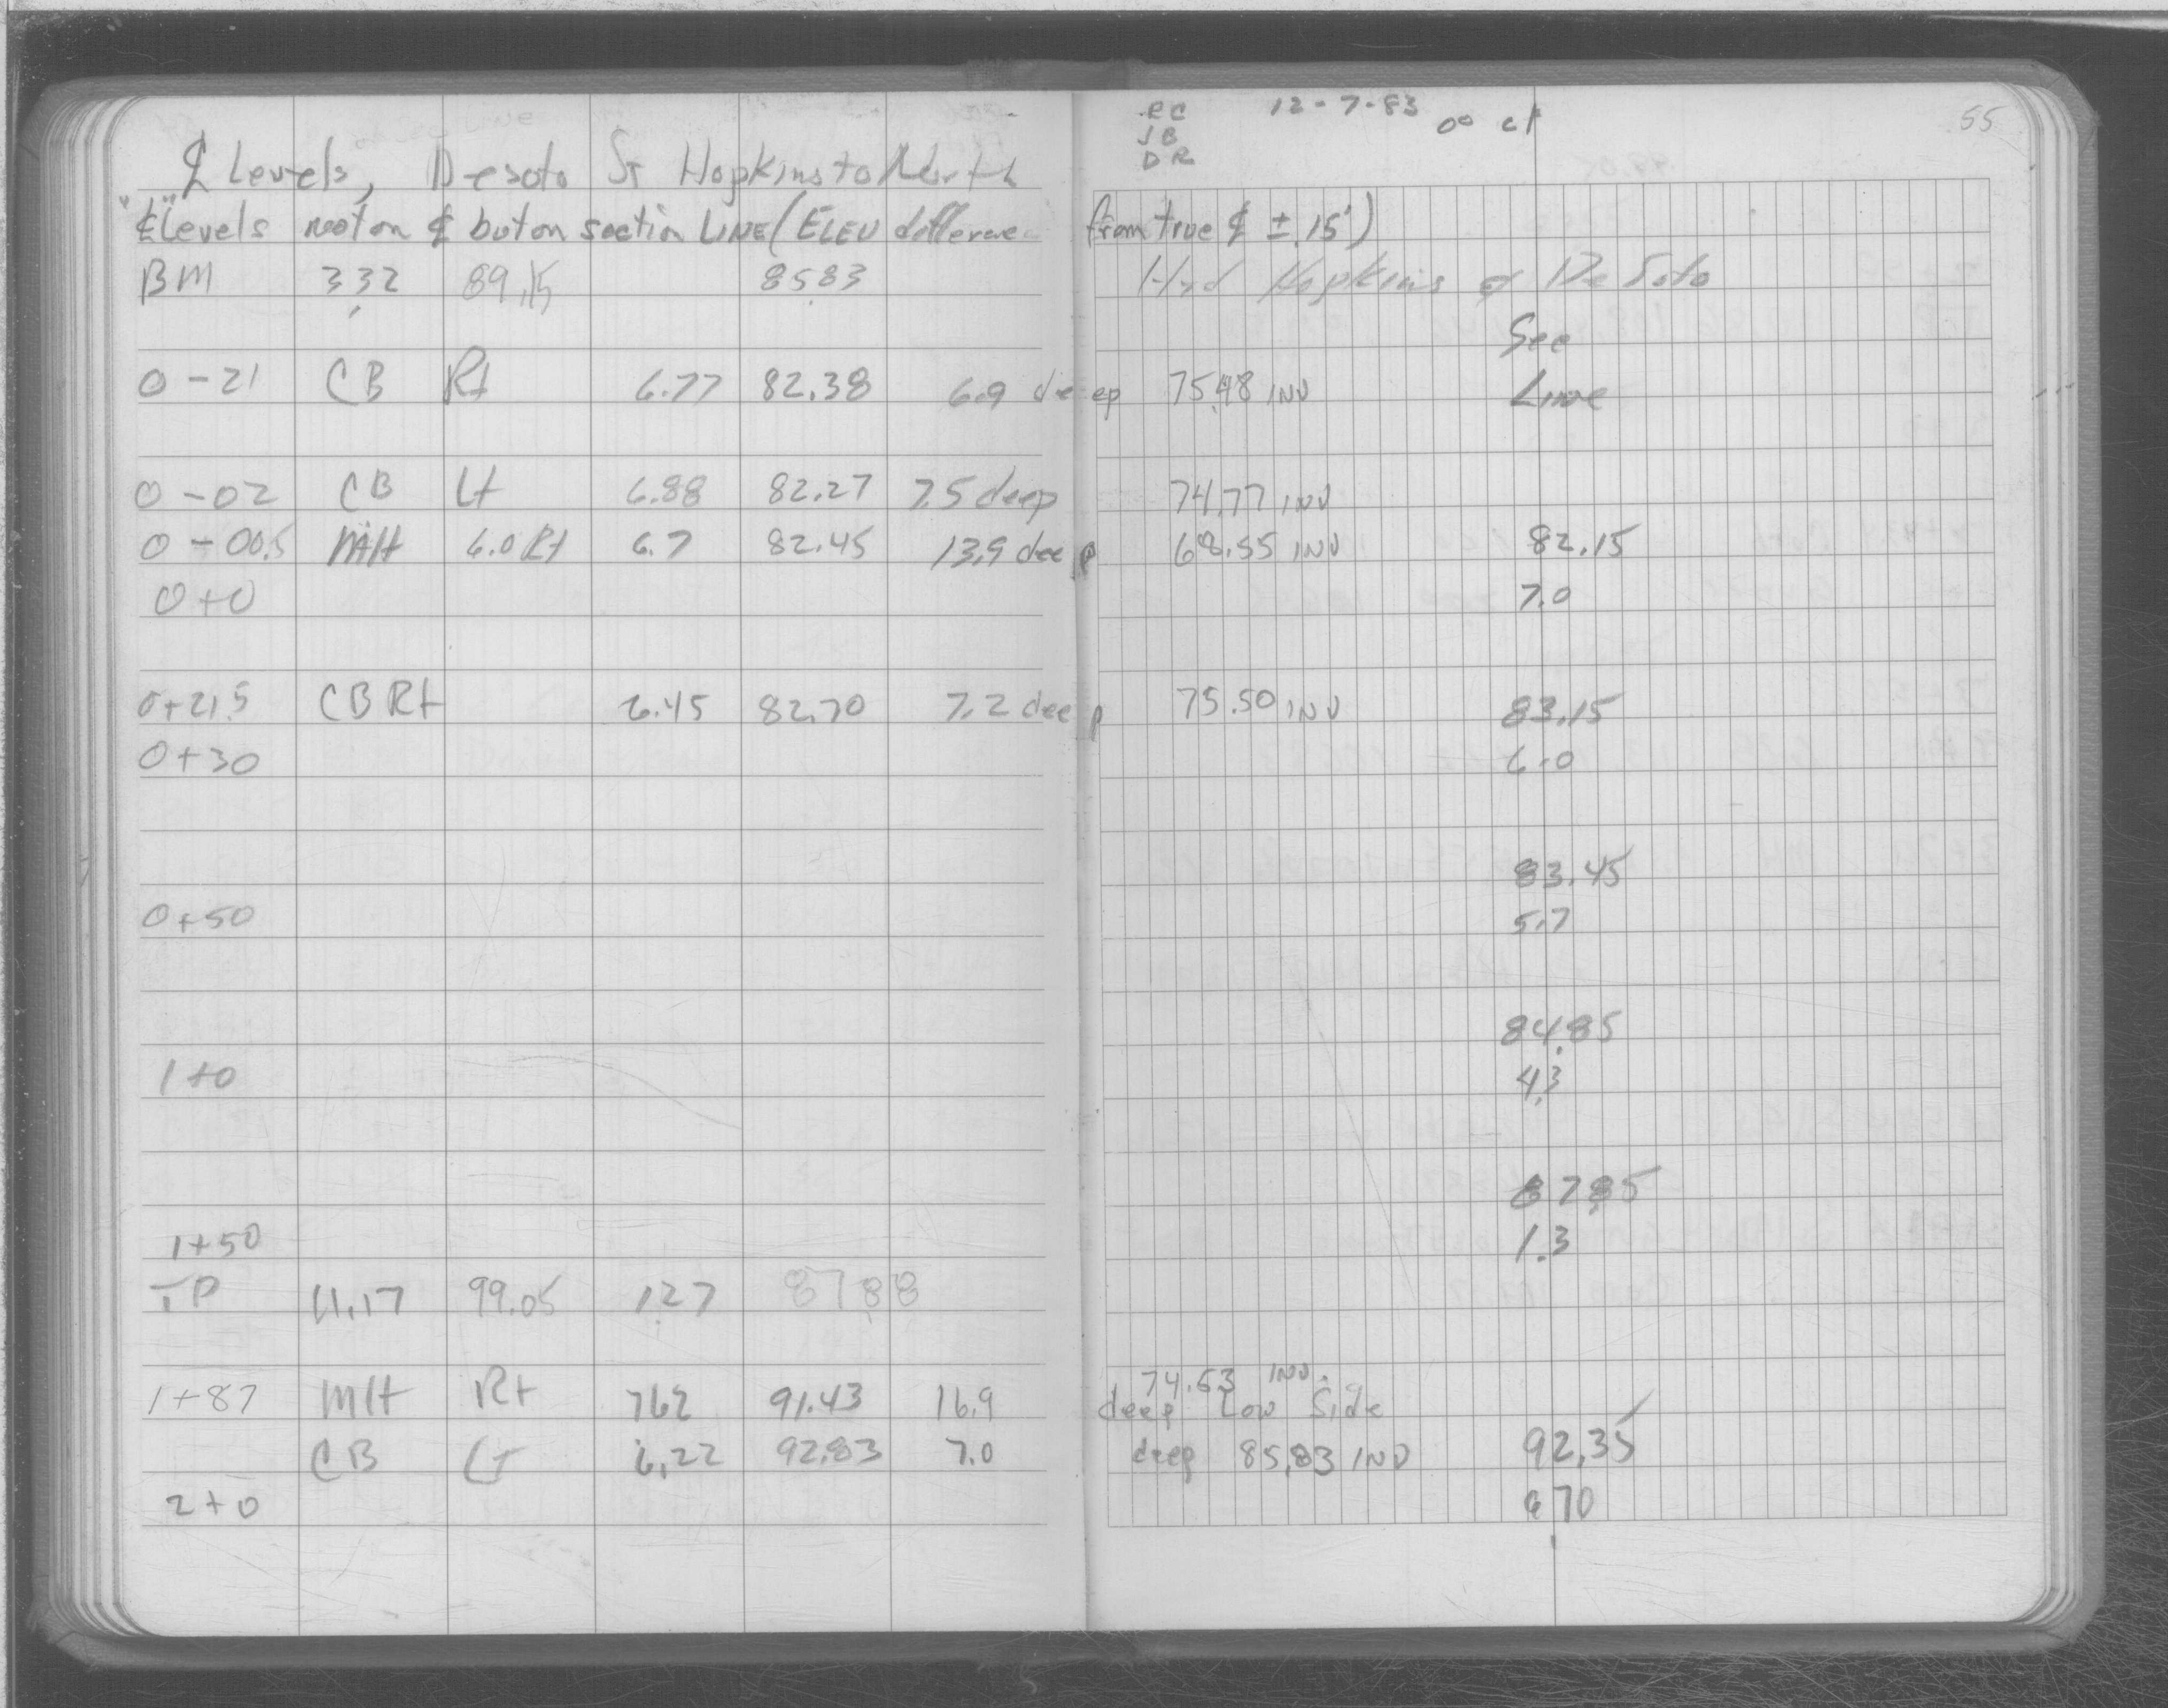 RC 12-7-83 0° clr 55
JB
DR
℄ Levels, Desoto St Hopkins to North
"℄" Levels not on ℄ but on section LINE (ELEV difference from true ℄ ± .15')
BM 3.32 89.15 85.83 Hyd Hopkins & De Soto
See
0-21 CB Rt 6.77 82.38 6.9 deep 75.48 INV Line
0-02 CB Lt 6.88 82.27 7.5 deep 74.77 INV
0-00.5 MH 6.0 Rt 6.7 82.45 13.9 deep 68.55 INV 82.15
0+0 7.0
0+21.5 CB Rt 6.45 82.70 7.2 deep 75.50 INV 83.15
0+30 6.0
83.45
0+50 5.7
84.85
1+0 4.3
87.85
1+50 1.3
TP 11.17 99.05 1.27 87.88
74.53 INV.
1+87 MH Rt 7.62 91.43 16.9 deep Low Side
CB Lt 6.22 92.83 7.0 deep 85.83 INV 92.35
2+0 6.70